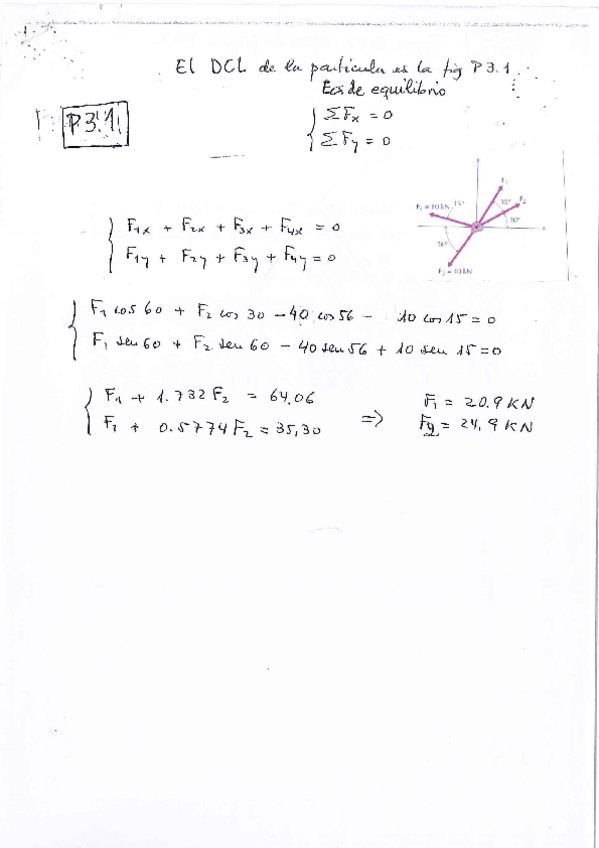 El DCL de la partícula es la fig P3.1
Ecs de equilibrio
P3.1.
ΣFx = 0
ΣFy = 0
F1x + F2x + F3x + F4x = 0
F1y + F2y + F3y + F4y = 0
F1
F2
15°
30°
30°
56°
F1 cos 60 + F2 cos 30 - 40 cos 56 - 10 cos 15 = 0
F1 sen 60 + F2 sen 60 - 40 sen 56 + 10 sen 15 = 0
F1 + 1.732 F2 = 64.06
F1 + 0.5774 F2 = 35,30
=> F1 = 20.9 KN
Fy = 24,9 KN